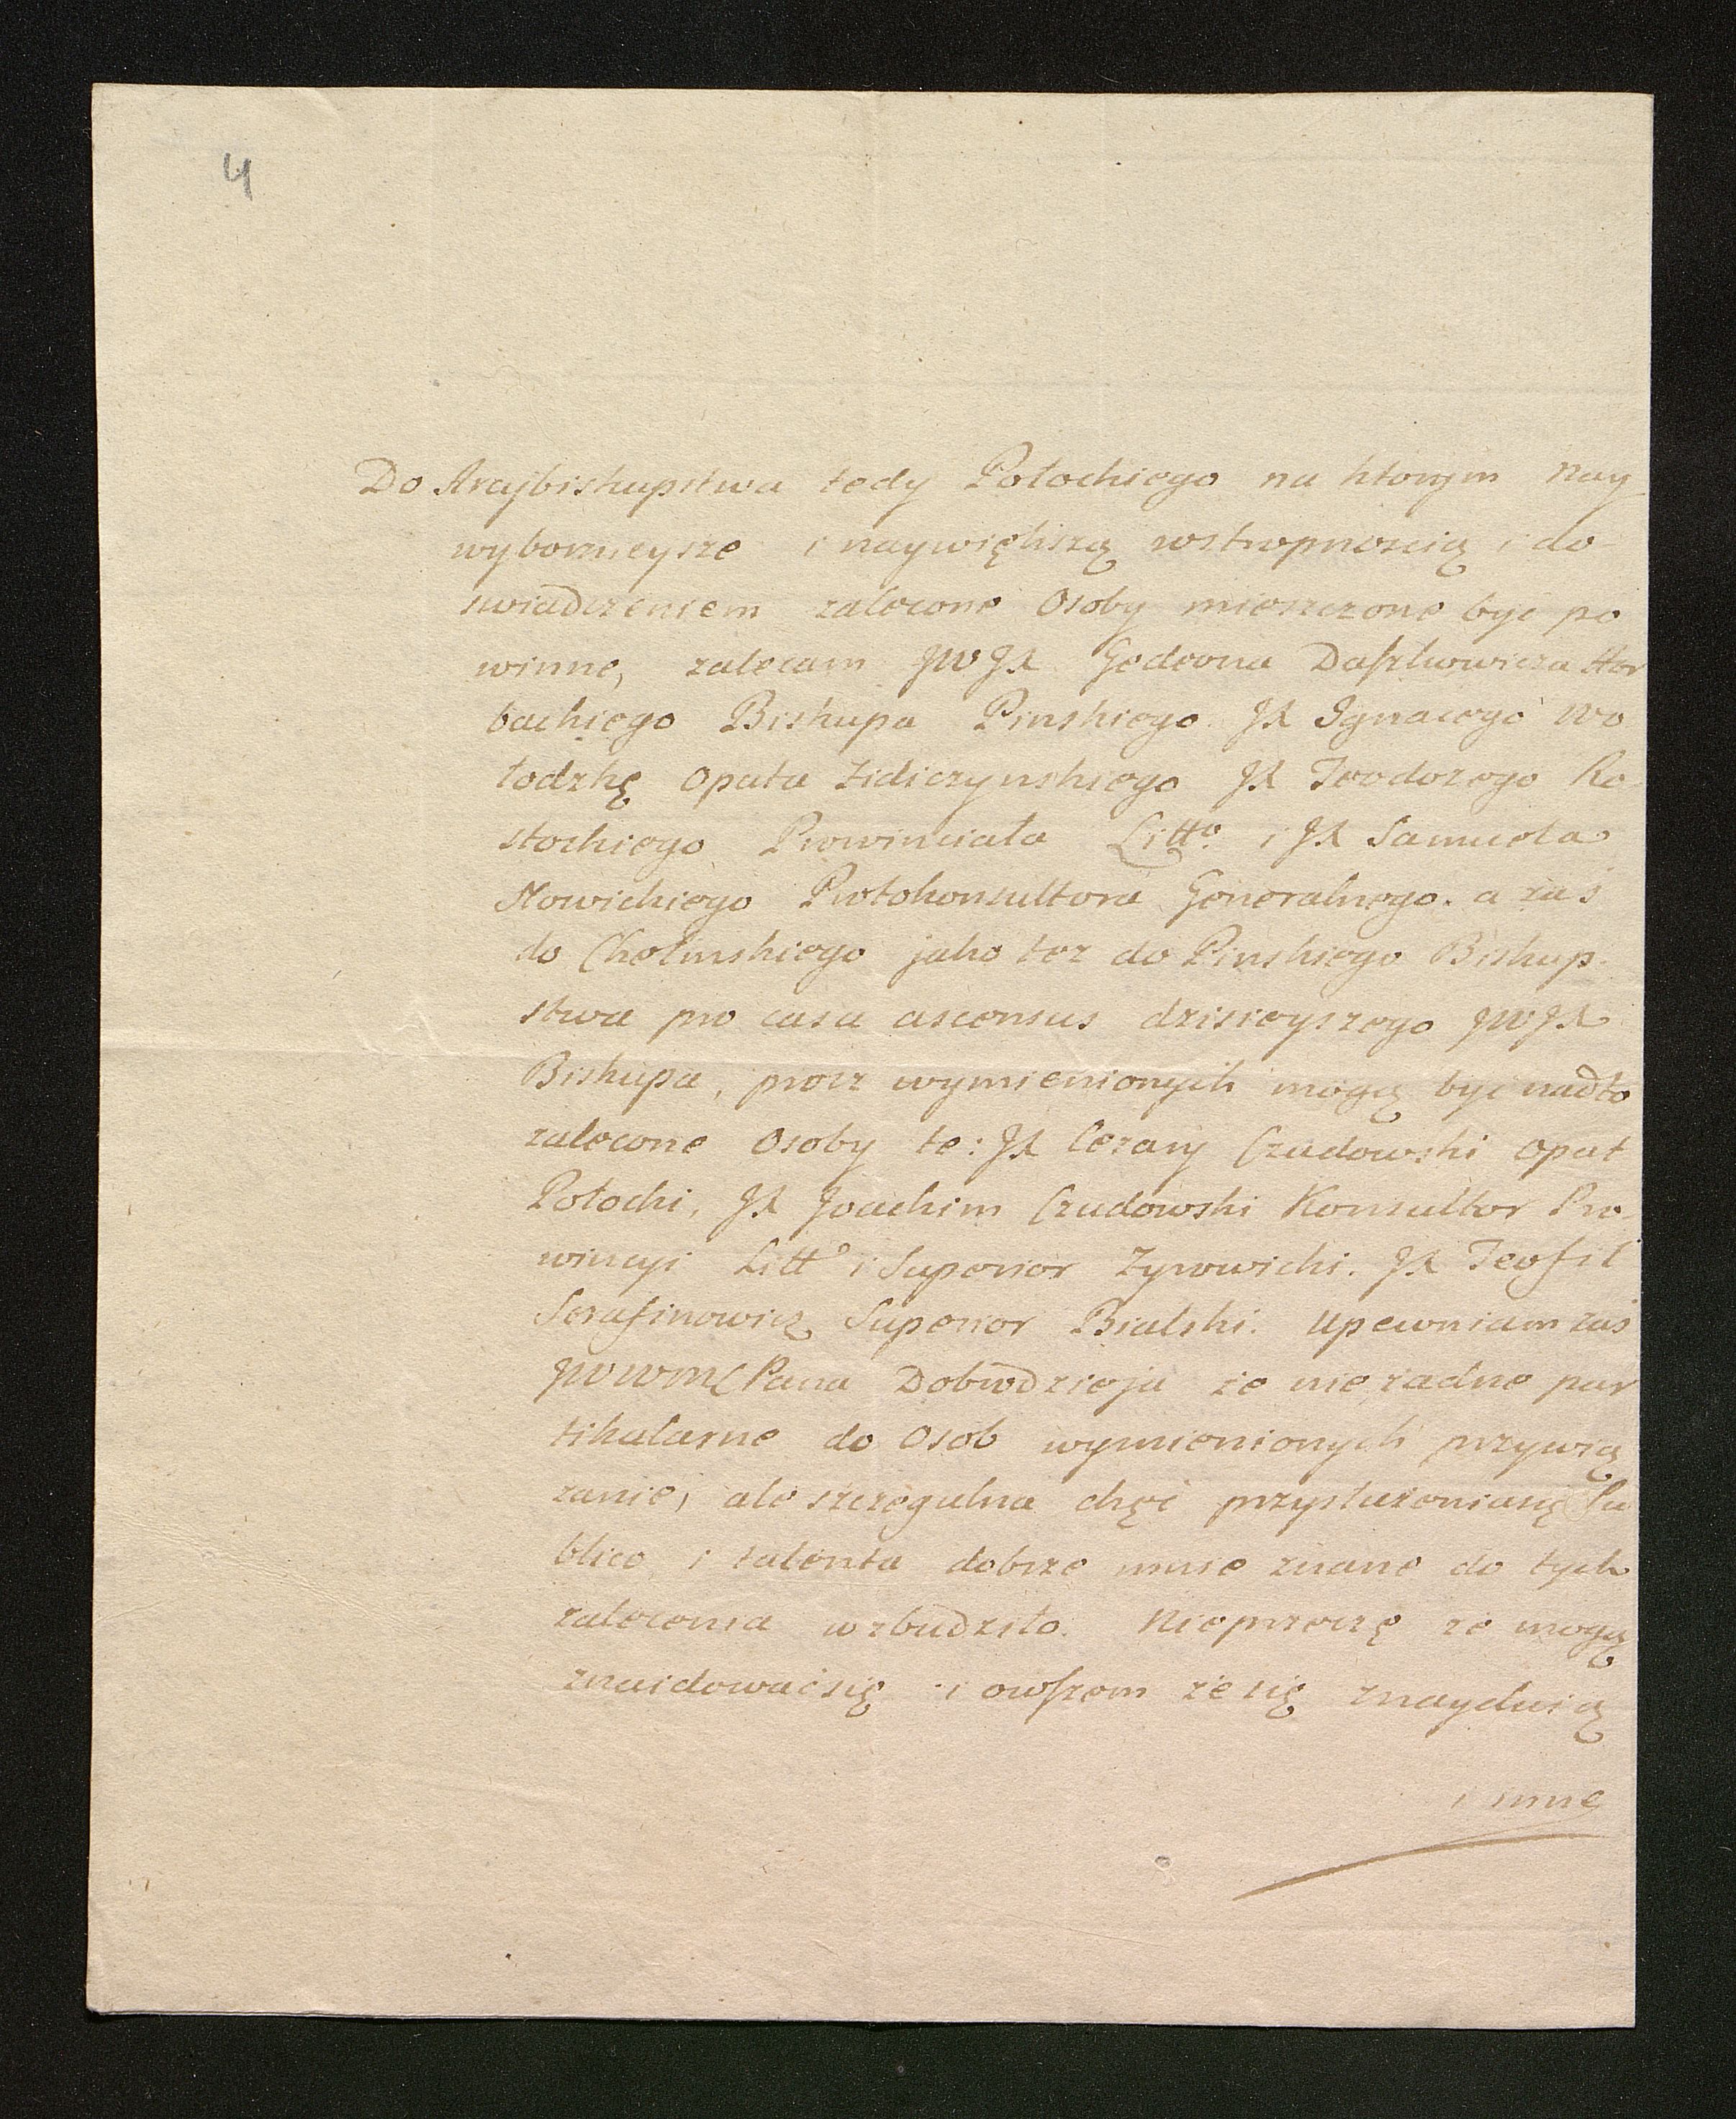 4
Do Arcybiskupstwa tedy Połockiego na ktorym nay
wybornieysze i naywiększą wstropnoscią i do
swiadczeniem zalecone Osoby mieszczone byc po
winne, zalecam JWJX Gedeona Daszkowicza Hor
backiego Biskupa Pinskiego JX Ignacego Wo
łodzkę Opata Zidiczynskiego JX Teodozego Ro
stockiego Prowinciała Litto i JX Samuela
Nowickiego Protokonsultora Generalnego. a zaś
do Chełmskiego jako tez do Pinskiego Biskup
stwa pro casu ascensus dzisieyszego JWJX
Biskupa, procz wymienionych mogą byc nadto
zalecone Osoby te: JX Cezary Czudowski Opat
Połocki, JX Joachim Czudowski Konsultor Pro
wincyi Litto i Superior Zyrowicki. JX Teofil
Serafinowicz Superior Bialski. Upewniam zas
JWWMCPana Dobrodzieja ze nie żadne par
tikularne do Osob wymienionych przywią
zanie, ale szczegulna chęć przysłużeniasię Pu
blico i talenta dobrze mnie znane do tych
zalecenia wzbudziło. Nieprzeczę ze mogą
znaidowaćsię i owszem że się znayduią
i inne